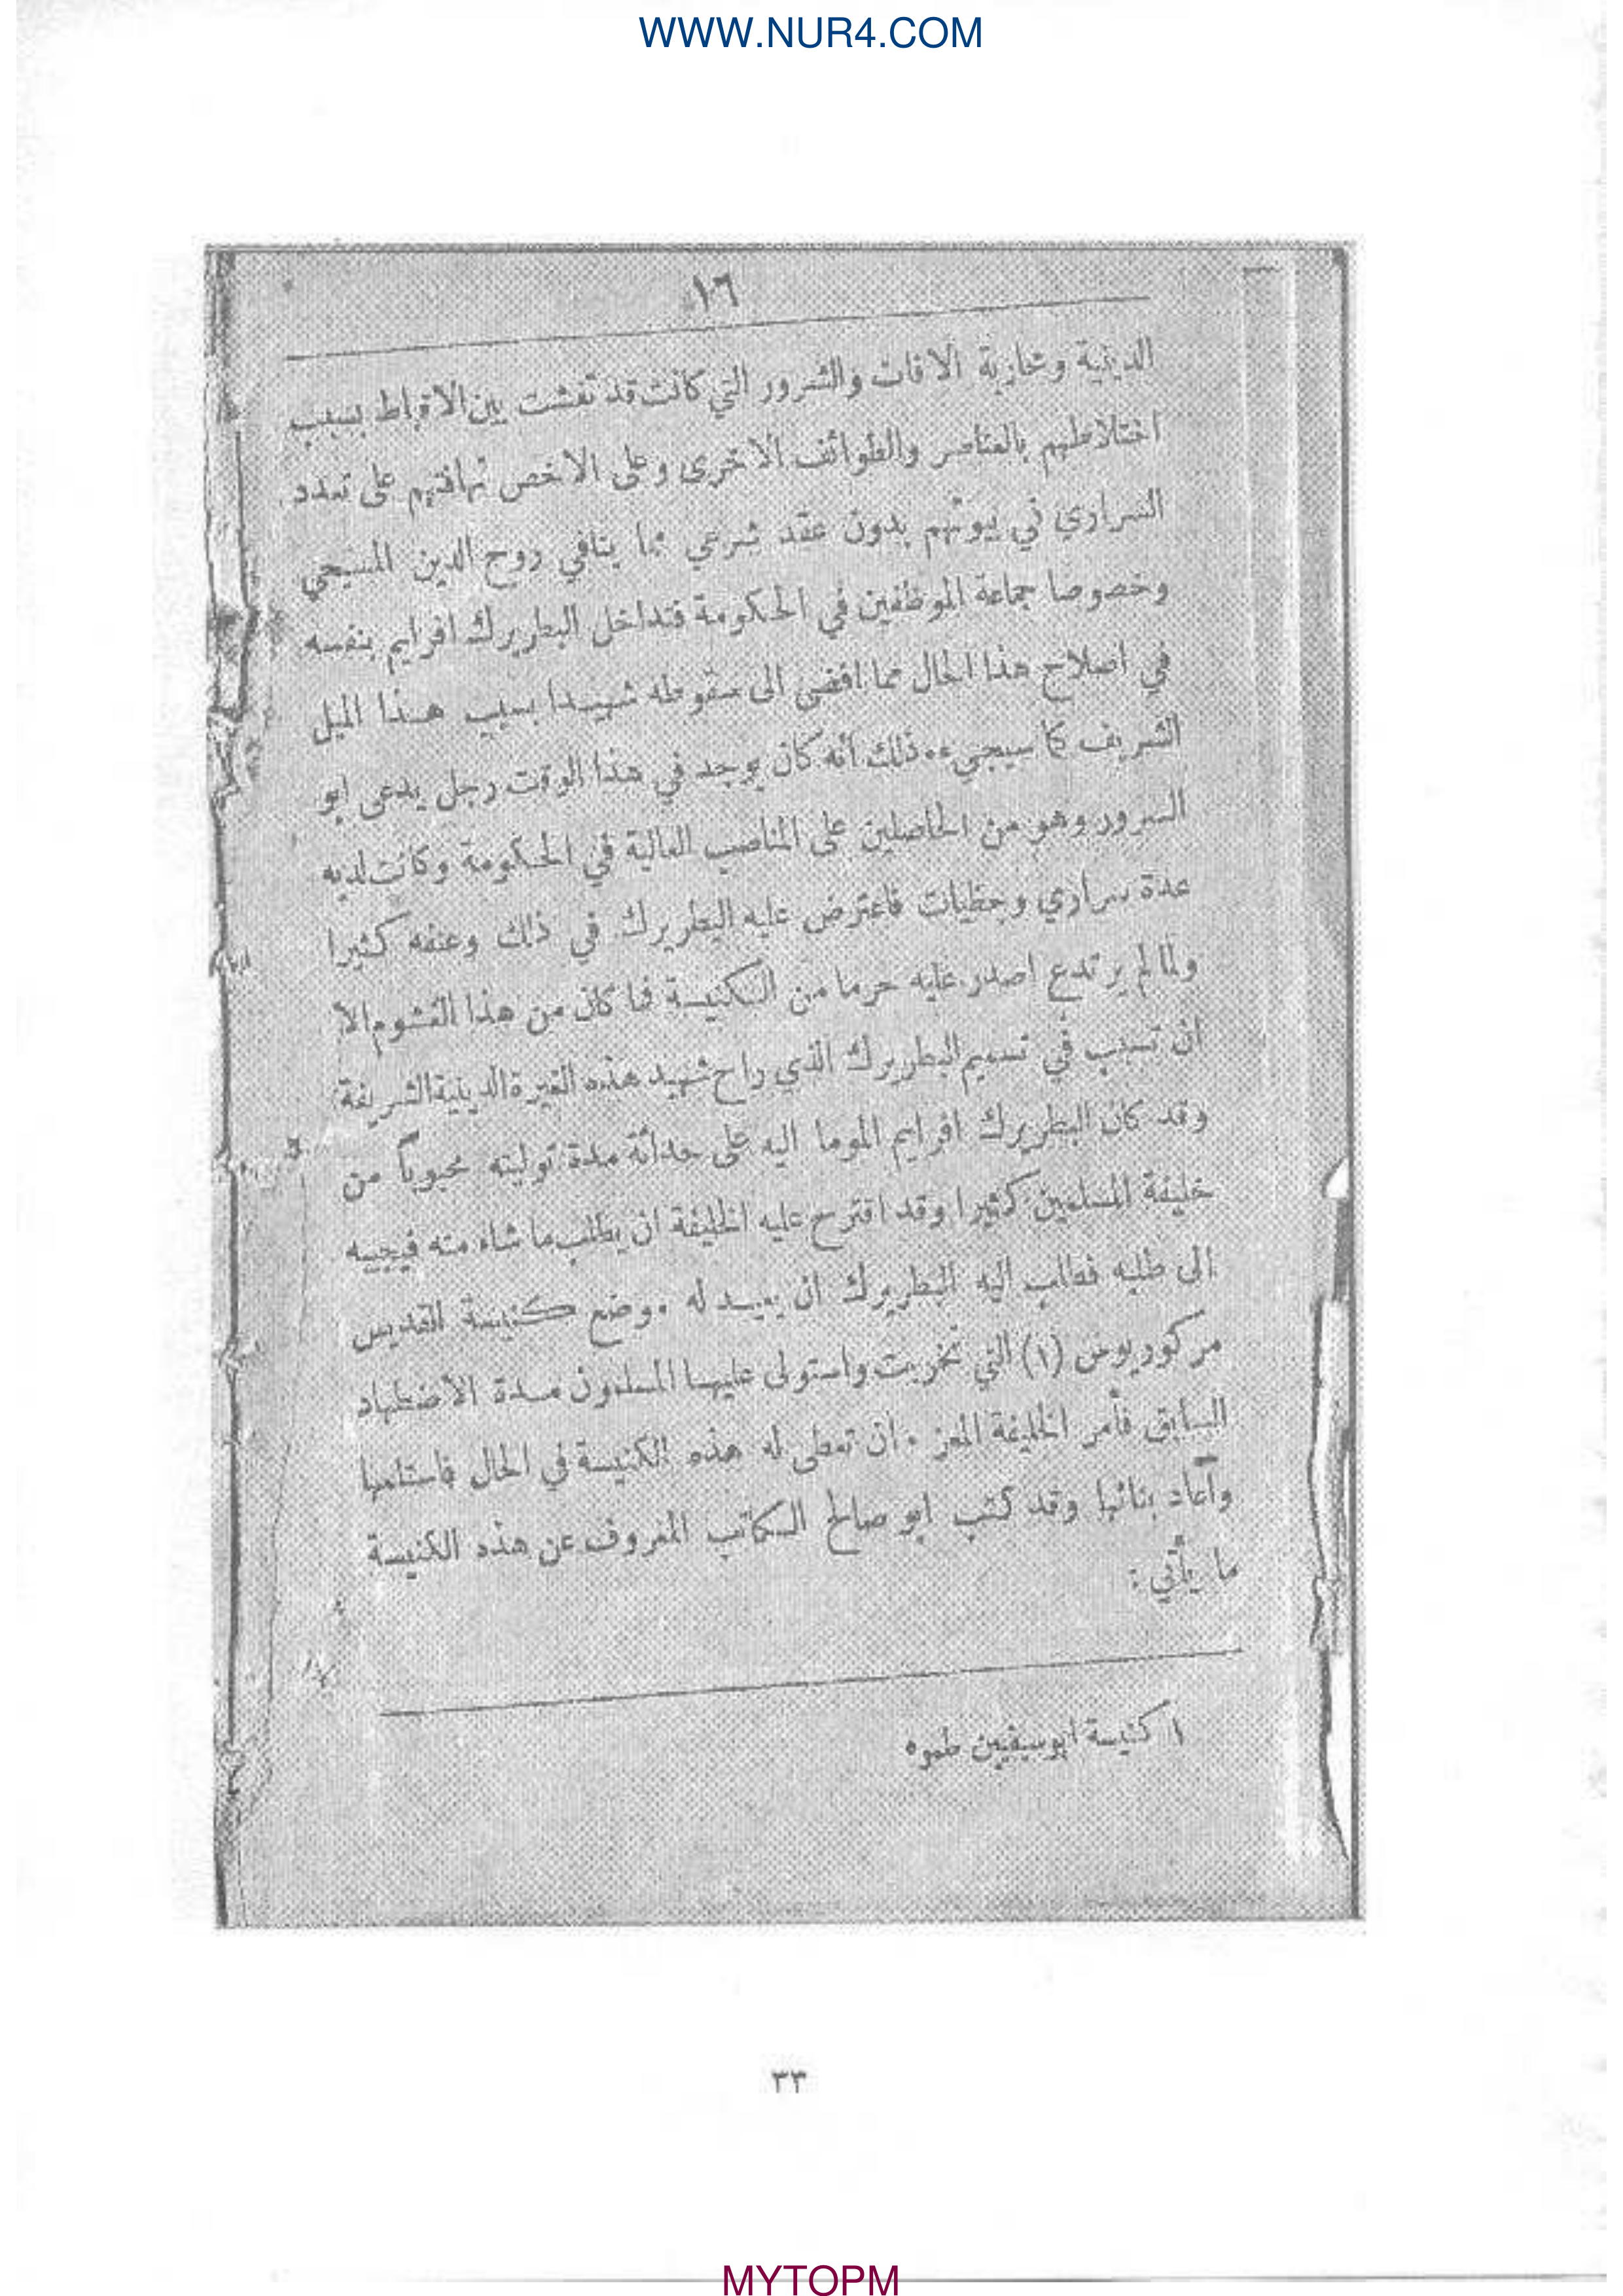 WWW.NUR4.COM
١٦
الدينية ومحاربة الافات والشرور التي كانت قد تفشت بين الاقباط بسبب
اختلاطهم بالعناصر والطوائف الاخرى وعلى الاخص تهافتهم على تعدد
السراري في بيوتهم بدون عقد شرعي مما ينافي روح الدين المسيحي
وخصوصا جماعة الموظفين في الحكومة فتداخل البطريرك افرايم بنفسه
في اصلاح هذا الحال مما افضى الى سقوطه شهيدا بسبب هذا الميل
الشريف كما سيجيء. ذلك انه كان يوجد في هذا الوقت رجل يدعى ابو
السرور وهو من الحاصلين على المناصب العالية في الحكومة وكانت لديه
عدة سراري وحظيات فاعترض عليه البطريرك في ذلك وعنفه كثيرا
ولما لم يرتدع اصدر عليه حرما من الكنيسة فما كان من هذا الغشوم الا
ان تسبب في تسميم البطريرك الذي راح شهيد هذه الغيرة الدينية الشريفة
وقد كان البطريرك افرايم الموما اليه على حداثة مدة توليته محبوباً من
خليفة المسلمين كثيرا وقد اقترح عليه الخليفة ان يطلب ما شاء منه فيجيبه
الى طلبه فطلب اليه البطريرك ان يعيد له موضع كنيسة القديس
مركوريوس (١) التي تخربت واستولى عليها المسلمون مدة الاضطهاد
السابق فأمر الخليفة المعز . ان تعطى له هذه الكنيسة في الحال فاستلمها
وأعاد بنائها وقد كتب ابو صالح الكاتب المعروف عن هذه الكنيسة
ما يأتي :
١ كنيسة ابو سيفين طموه
٣٣
MYTOPM